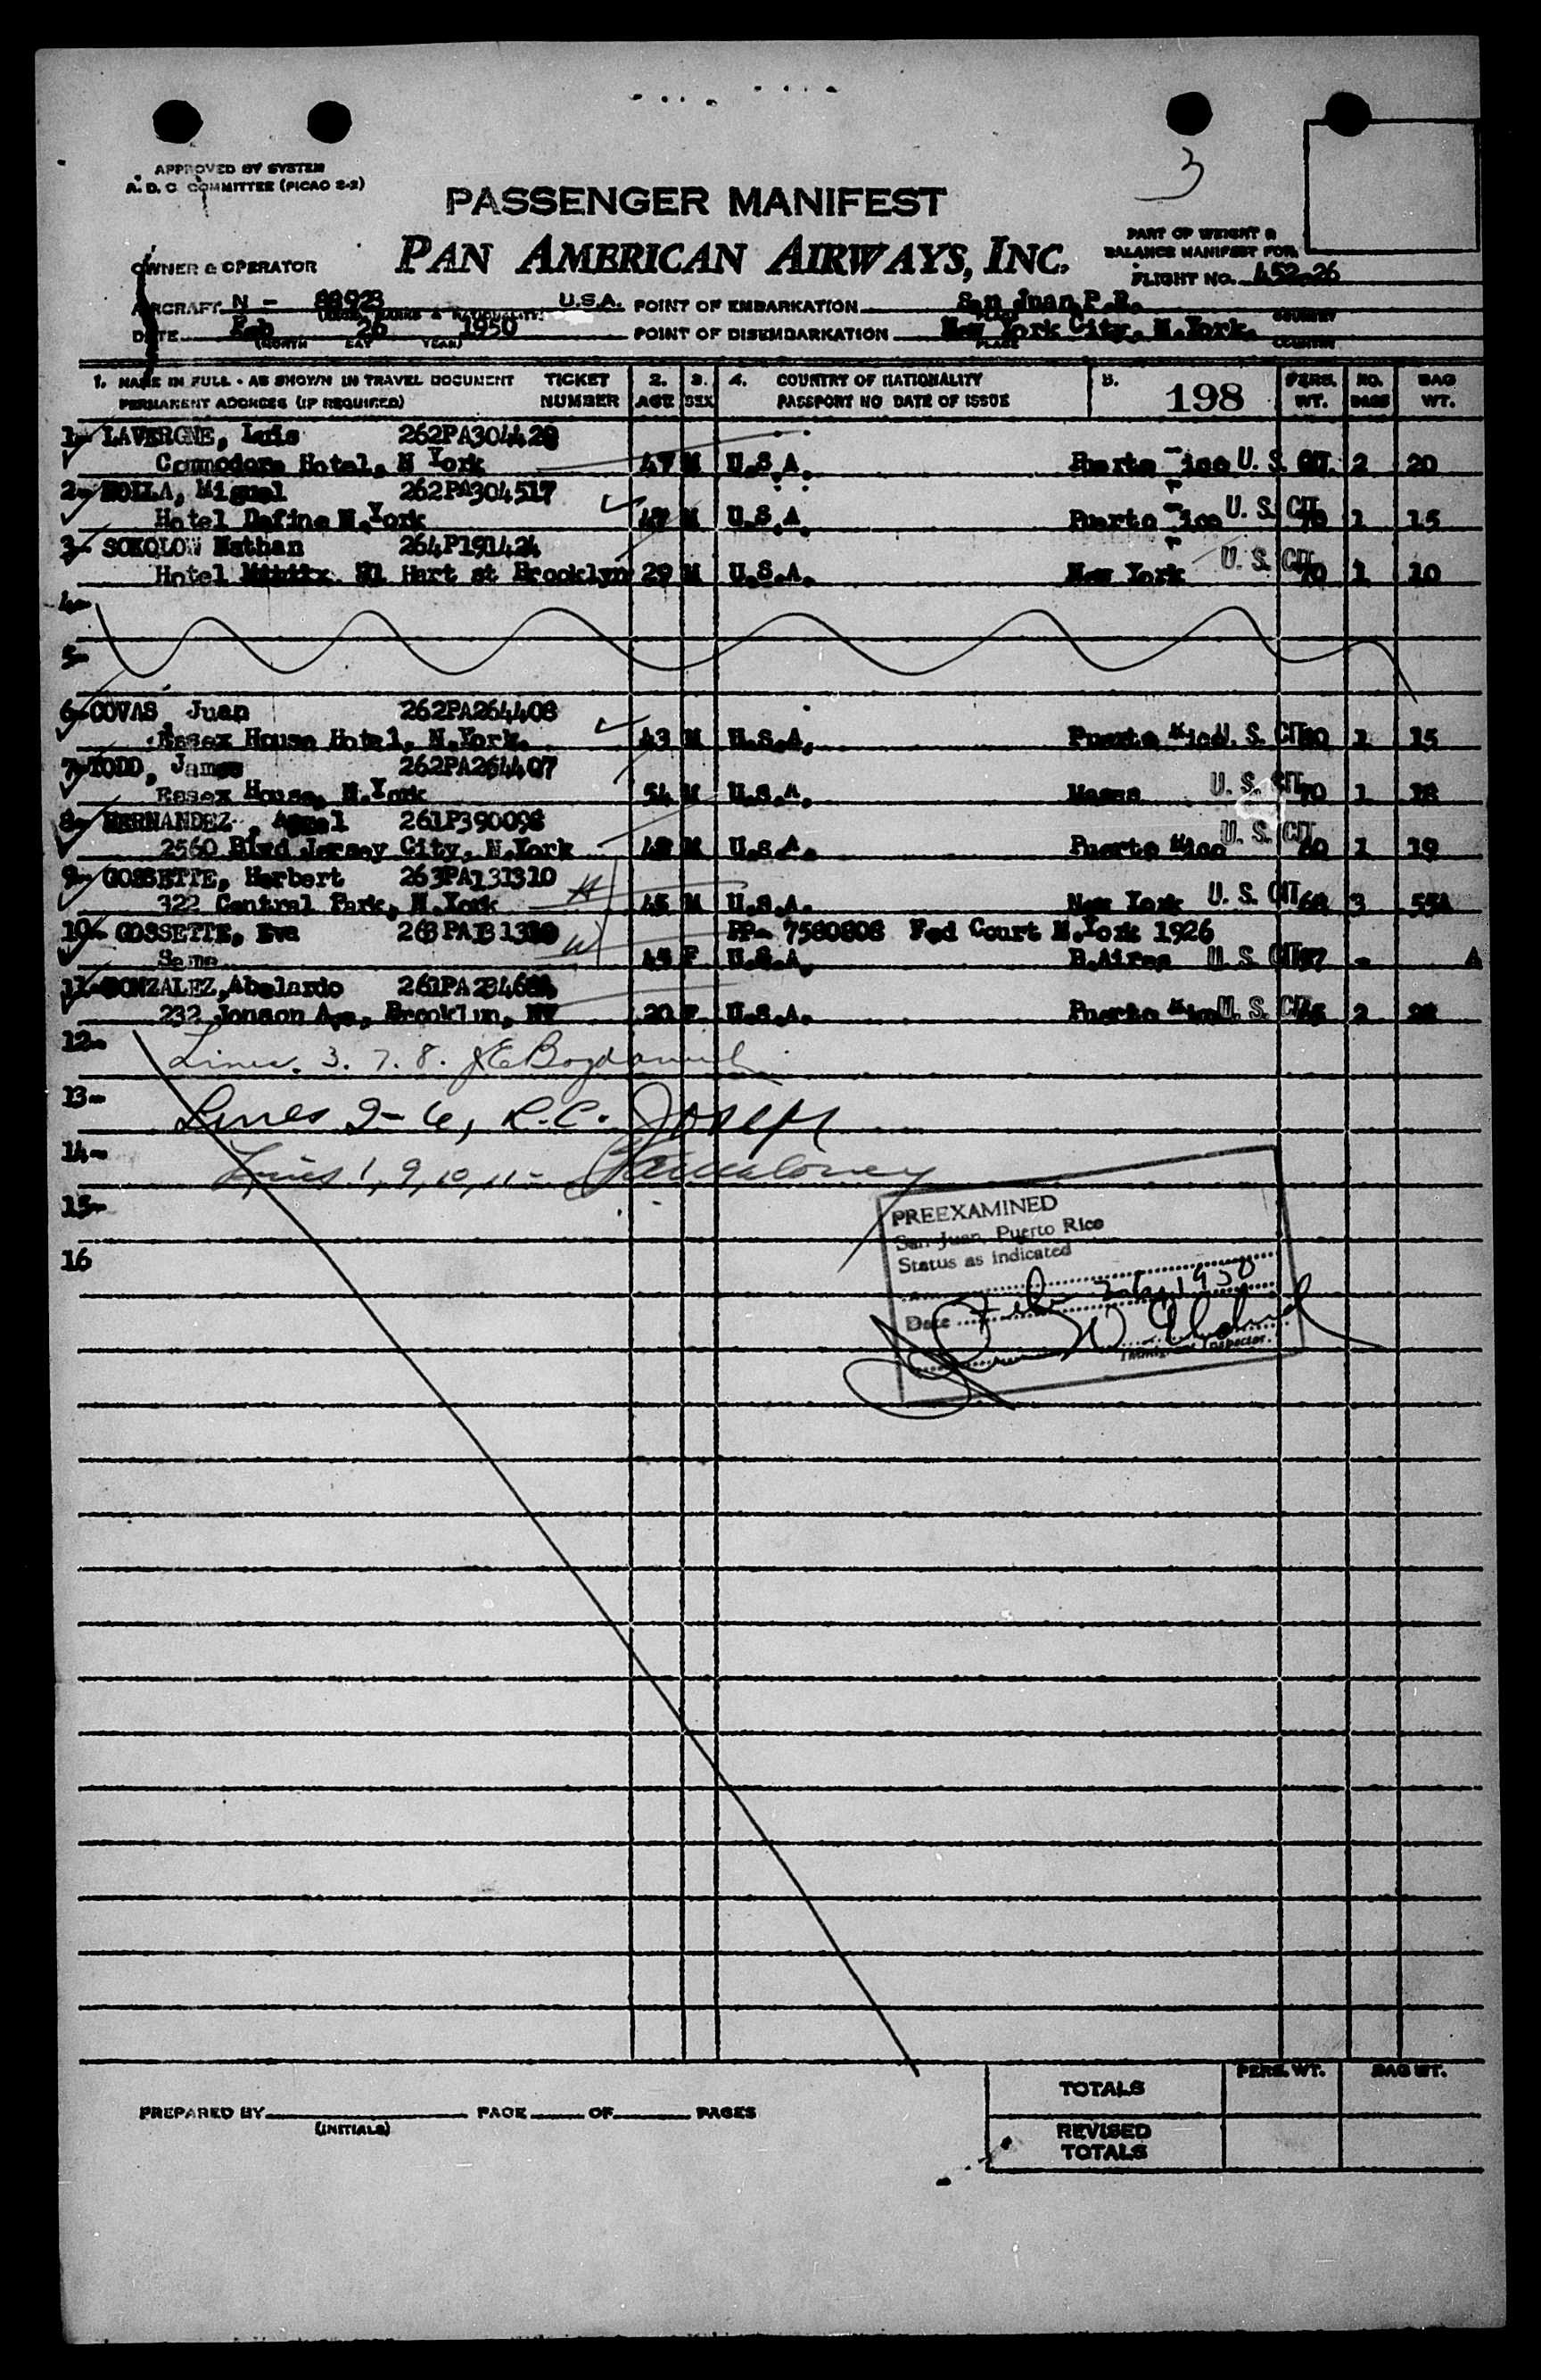 3
APPROVED BY SYSTEM
A. D. C. COMMITTEE (PICAO 2-2)
PASSENGER MANIFEST
PAN AMERICAN AIRWAYS, INC.
PART OF WEIGHT &
BALANCE MANIFEST FOR
FLIGHT NO. 452-26
OWNER & OPERATOR
AIRCRAFT N - 88923 U.S.A. POINT OF EMBARKATION San Juan P.R.
DATE Feb 26 1950 POINT OF DISEMBARKATION New York City, N.York.
(MONTH DAY YEAR) PLACE COUNTRY
1. NAME IN FULL - AS SHOWN IN TRAVEL DOCUMENT TICKET 2. 3. 4. COUNTRY OF NATIONALITY 5. 198 PERS. NO. BAG
PERMANENT ADDRESS (IF REQUIRED) NUMBER AGE SEX PASSPORT NO DATE OF ISSUE WT. BAGS WT.
1- LAVERGNE, Luis 262PA304428
Commodore Hotel, N York 47 M U.S.A. Puerto ico U. S. CIT. 2 20
2- Miguel 262PA304517
Hotel N.York M U.S.A. Puerto ico U. S. CIT 70 1 15
3- SOKOLOW Nathan 264P191424
Hotel Hart st Brooklyn 29 M U.S.A. New York U. S. CIT 70 1 10
4-
5-
6- COVAS, Juan 262PA264408
Essex House Hotel, N.York. 43 M U.S.A. Puerto ico U. S. CIT 1 15
7- TODD, James 262PA264407
Essex House, N.York 54 M U.S.A. Masna U. S. CIT 70 1
8- HERNANDEZ, Angel 261P390098
2560 Blvd Jersey City, N.York M U.S.A. Puerto ico U. S. CIT 1 19
9- GOSSETTE, Herbert 263PA131310 H
322 Central Park, N.York 45 M U.S.A. New York U. S. CIT 68 3 55A
10- GOSSETTE, Eva W PP- 7580808 Fed Court N.York 1926
Same 45 F U.S.A. B.Aires U. S. CIT - A
11- GONZALEZ, Abelardo
232 Jonson Ave, Brooklun, NY 20 F U.S.A. Puerto ico U. S. CIT 2
12- Lines. 3. 7. 8.
13- Lines 2-6, R.C. Joseph
14- Lines 1, 9, 10, 11-
15-
16
PREEXAMINED
San Juan, Puerto Rico
Status as indicated
Date Feb 26, 1950
Immigrant Inspector.
TOTALS PERS. WT. BAG WT.
PREPARED BY PAGE OF PAGES
(INITIALS)
REVISED
TOTALS